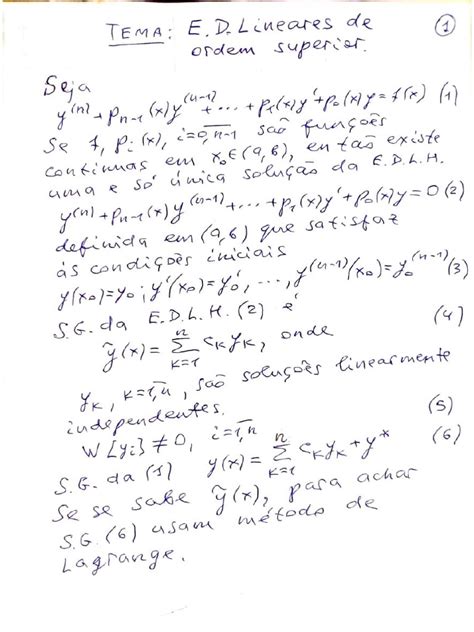 TEMA: E.D. Lineares de ①
ordem superior.
Seja
y⁽ⁿ⁾+pₙ₋₁(x)y⁽ⁿ⁻¹⁾+...+p₁(x)y'+p₀(x)y=f(x) (1)
Se f, pᵢ(x), i=0,n-1 são funções
contínuas em x₀∈(a,b), então existe
uma e só única solução da E.D.L.H.
y⁽ⁿ⁾+pₙ₋₁(x)y⁽ⁿ⁻¹⁾+...+p₁(x)y'+p₀(x)y=0 (2)
definida em (a,b) que satisfaz
às condições iniciais
y(x₀)=y₀; y'(x₀)=y₀', ..., y⁽ⁿ⁻¹⁾(x₀)=y₀⁽ⁿ⁻¹⁾ (3)
S.G. da E.D.L.H. (2) é
ỹ(x)=∑ₖ₌₁ⁿ cₖyₖ, onde (4)
yₖ, k=1,n, são soluções linearmente
independentes.
W[yᵢ]≠0, i=1,n (5)
S.G. da (1) y(x)=∑ₖ₌₁ⁿ cₖyₖ+y* (6)
Se se sabe ỹ(x), para achar
S.G. (6) usam método de
Lagrange.